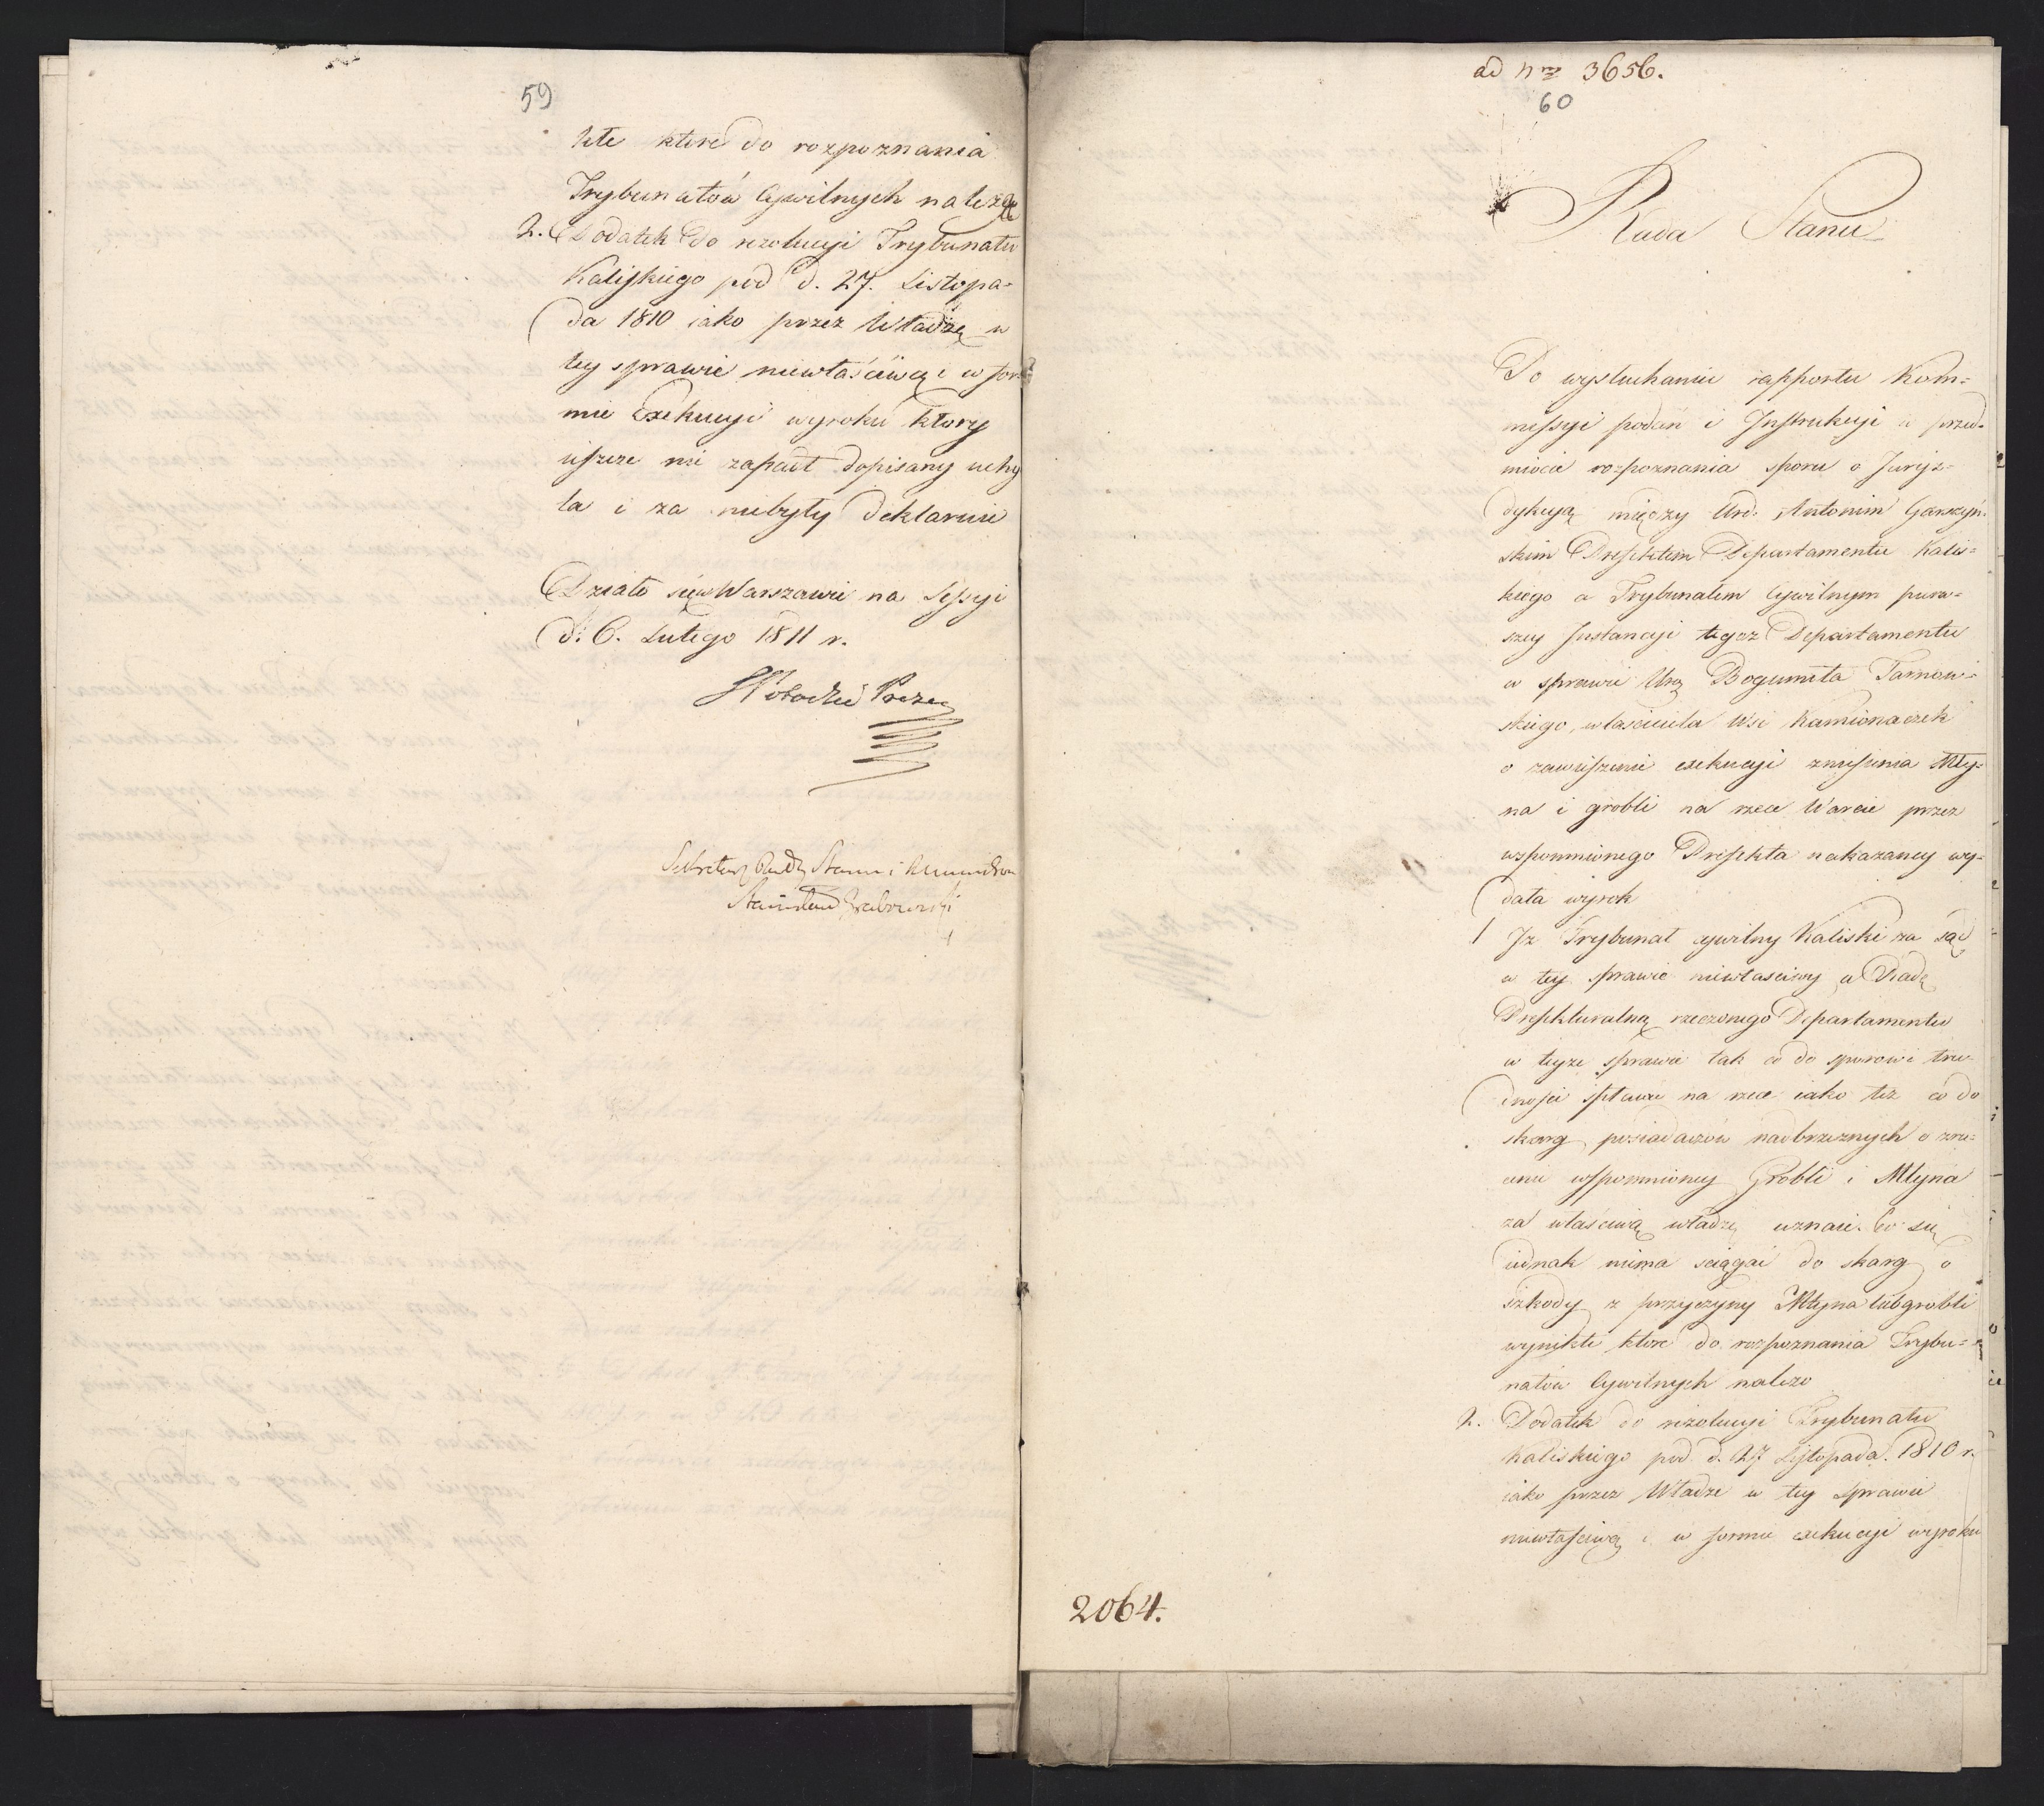 59
kłe które do rozpoznania
Trybunałów Cywilnych należą
2. Dodatek do rezolucyi Trybunału
Kaliskiego pod d. 27. Listopa-
da 1810 iako przez Władzę w
tey sprawie niewłaściwą i w for-
mie Exekucyi wyroku który
ieszcze nie zapadł dopisany uchy
la i za niebyły deklaruie
Działo się w Warszawie na Sessyi
d: 6. Lutego 1811 r.
Prezes
Sekretarz Rady Stanu i Ministrów
Stanisław Grabowski
ad nrm 3656.
60
Rada Stanu
Po wysłuchaniu rapportu Kom-
missyi podań i Instrukcyi w przed-
miocie rozpoznania sporu o Juryz-
dykcyą między Urd. Antonim Garczyń-
skim Prefektem Departamentu Kalis-
kiego a Trybunałem Cywilnym pierw-
szey Instancyi tegoż Departamentu
w sprawie Urg Bogumiła Tarnow-
skiego, właściciela Wsi Kamionaczek
o zawieszenie exekucyi zniesienia Mły-
na i grobli na rzece Warcie przez
wspomnionego Prefekta nakazaney wy-
dała wyrok
1 Iż Trybunał cywilny Kaliski za Sąd
w tey sprawie niewłaściwy a Radę
Prefekturalną rzeczonego Departamentu
w teyże sprawie tak co do sporów i tru-
dności spławu na rzece iako też co do
skarg posiadaczów nadbrzeżnych o zrzu-
cenie wspomnioney Grobli i Młyna
za właściwą władzę uznaie. Co się
iednak niema ściągać do skarg o
szkody z przyczyny Młyna lub grobli
wynikłe które do rozpoznania Trybu-
nałów Cywilnych należą
2. Dodatek do rezolucyi Trybunału
Kaliskiego pod d. 27 Listopada 1810 r.
iako przez Władze w tey sprawie
niewłaściwą i w formie exekucyi wyroku
2064.